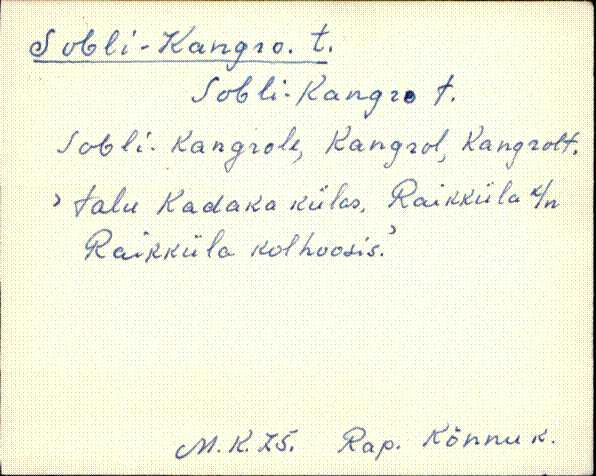 Sobli-Kangro. t.
Sobli-Kangro t.
Sobli-Kangrole, Kangrol, Kangrolt.
› talu Kadaka külas, Raikküla k/n
Raikküla kolhoosis.›
M.K.75. Rap. Kõnnu k.